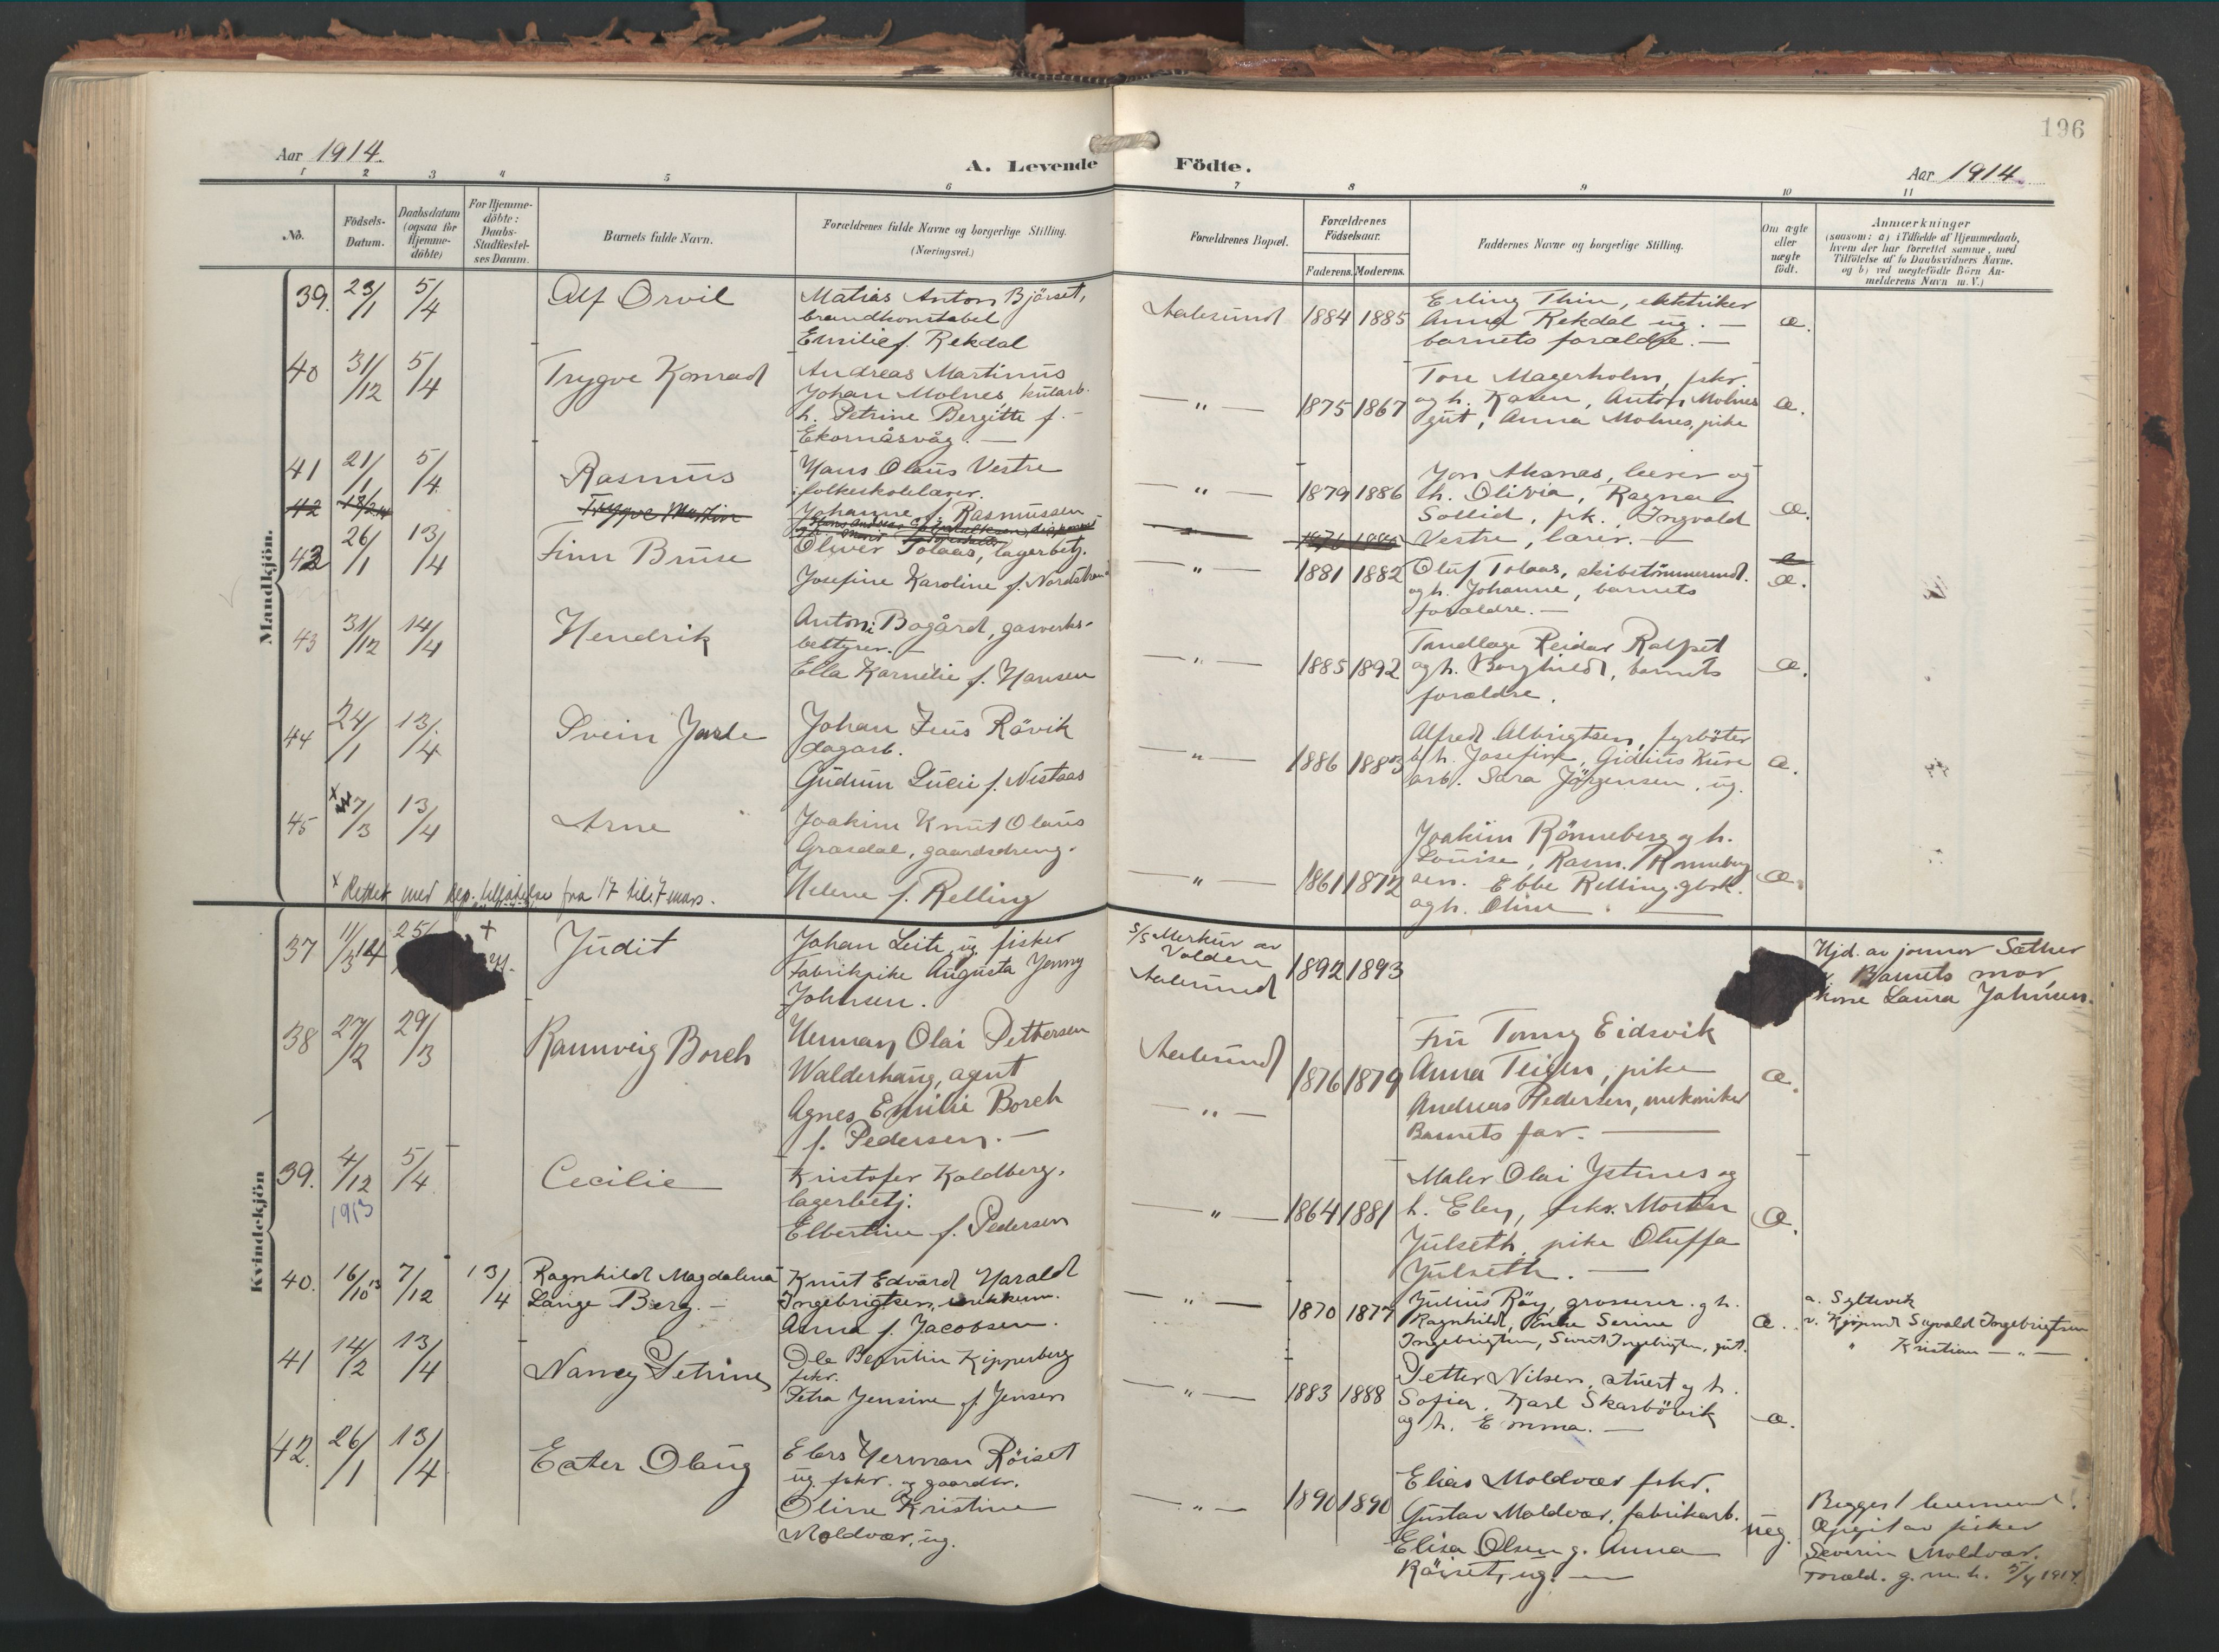 196
Aar 1914.
A. Levende Födte.
Aar 1914
1 2 3 4 5 6 7 8 9 10 11
No.
Födsels-Datum.
Daabsdatum (ogsaa for Hjemme-döbte)
For Hjemme-döbte: Daabs-Stadfæstel-ses Datum.
Barnets fulde Navn.
Forældrenes fulde Navne og borgerlige Stilling.
(Næringsvei.)
Forældrenes Bopæl.
Forældrenes Födselsaar.
Faderens. Moderens.
Faddernes Navne og borgerlige Stilling.
Om ægte eller uægte födt.
Anmærkninger
(saasom: a) i Tilfælde af Hjemmedaab,
hvem der har forrettet samme, med
Tilföielse af to Daabsvidners Navne,
og b) ved uægtefödte Börn An-
melderens Navn m. V.)
Mandkjön.
39. 23/1 5/4 Alf Orvil
Matias Anton Bjørset,
brandkonstabel
Emilie f. Rekdal
Aalesund 1884 1885
Erling Thiu, elektriker
Anna Rekdal ug. —
barnets forældre. —
æ.
40 31/12 5/4 Trygve Konrad
Andreas Martinus
Johan Molnes, kularb.
h. Petrine Bergitte f.
Ekornåsvåg. —
— " — 1875 1867
Tore Magerholm, fskr.
og h. Karen, Anton Molnes
gut, Anna Molnes, pike
æ.
41 21/1 5/4 Rasmus
Hans Olaus Vestre
folkeskolelærer.
Johanne f. Rasmussen
— " — 1879 1886
Jon Aksnes, lærer og
h. Olivia, Ragna
Sollid, pk. Ingvald
Vestre, lærer. —
æ.
42 Trygve Martin
42 26/1 13/4 Finn Bruse
Oliver Tolaas, lagerbetj.
Josefine Karoline f. Nordstrand
— " — 1881 1882
Oluf Tolaas, skibstömmermd.
og h. Johanne, barnets
forældre. —
æ.
43 31/12 14/4 Hendrik
Anton Bogård, gasverks-
bestyrer. —
Ella Karnelie f. Hansen
— " — 1885 1892
Tandlæge Reidar
og h. Borghild, barnets
forældre.
æ.
44 24/1 13/4 Svein Jarle
Johan Zeus Rövik
dagarb.
Gudrun Lucie f. Nistaas
— " — 1886 1883
Alfred Albrigtsen, fyrböter
og h. Josefine, Gidius Kure
arb. Sara Jörgensen, ug.
æ.
45 x 7/3 13/4 Arne
Joakim Knut Olaus
Grasdal, gaardsdreng.
Helene f. Relling
— " — 1861 1872
Joakim Rönneberg og h.
Louise, Rasm. Rönneberg
sen. Ebbe Relling, gbrk.
og h. Oline. —
æ.
x Rettet med dep. tilladelse fra 17 til 7 mars.
Kvindekjön
37 11/3 14 25/ + Judit
Johan Leite, ug. fisker
Fabrikpike Augusta Jenny
Johnsen.
S/S Merkur av
Volden
Aalesund
1892 1893
Hjd. av jormor Sæther
Barnets mor
kone Laura Johnsen.
38 27/2 29/3 Rannveig Borch
Herman Olai Pettersen
Walderhaug, agent
Agnes Emilie Borch
f. Pedersen. —
Aalesund
— " —
1876 1879
Fru Tonny Eidsvik
Anna Teigen, pike
Andreas Pedersen, mekaniker
Barnets far. —
æ.
39. 4/12 1913 5/4 Cecilie
Kristofer Koldberg,
lagerbetj.
Elbertine f. Pedersen
— " — 1864 1881
Maler Olai Ystenes og
h. Elen, fskr. Morten
Julseth, pike Oluffa
Julseth. —
æ.
40. 16/10 13 7/12 13/4 Ragnhild Magdalena
Lange Berg. —
Knut Edvard Harald
Ingebrigtsen,
Anna f. Jacobsen.
— " — 1870 1877
Julius Röy, grosserer og h.
Ragnhild, Enke Serine
Ingebrigtsen, Sivert Ingebrigtsen, gut.
æ.
a. Syltevik
v. Kjöpmd Sigvald Ingebrigtsen
" Kristian — " —
41 14/2 13/4 Nancy Petrine
Ole Berntin Kipperberg
fskr.
Petra Jensine f. Jensen
— " — 1883 1888
Petter Nilsen, stuert og h.
Sofie, Karl Skarbövik
og h. Emma. —
æ.
42. 26/1 13/4 Ester Olaug
Elers Herman Röiset
ug. fskr. og gaardbr.
Oline Kristine
Moldvær, ug.
— " — 1890 1890
Elias Moldvær fskr.
Gustav Moldvær, fabrikarb.
Elisa Olsen g. Anna
Röiset, ug. —
uæg.
Begges 1
Opgit av fisker
Severin Moldvær.
Foræld. g. m. h. 5/4 1914.